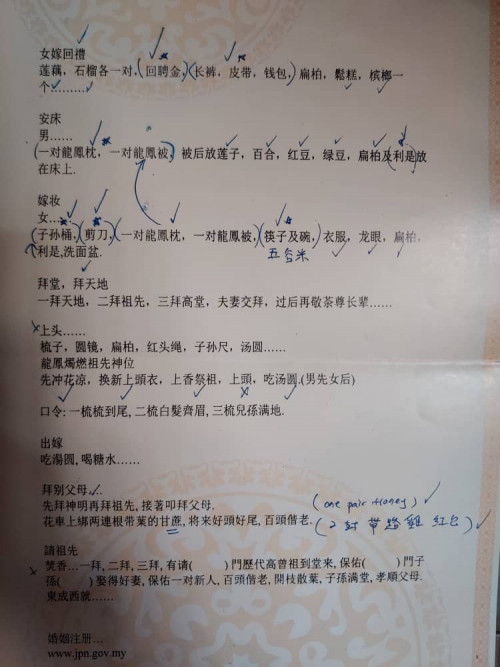 女嫁回禮
莲藕，石榴各一对,(回聘金,)(长裤，皮带，钱包,) 扁柏，鬆糕，槟榔一
个………
安床
男……
(一对龍鳳枕，一对龍鳳被,) 被后放莲子，百合，红豆，绿豆，扁柏及(利是)放
在床上.
嫁妆
女……
(子孙桶,)(剪刀,)(一对龍鳳枕，一对龍鳳被,)(筷子及碗,) 衣服，龙眼，扁柏，
利是,洗面盆.
五谷米
拜堂，拜天地
一拜天地，二拜祖先，三拜高堂，夫妻交拜，过后再敬茶尊长辈……
x 上头……
梳子，圆镜，扁柏，红头绳，子孙尺，汤圆……
龍鳳燭燃祖先神位
先冲花凉，换新上頭衣，上香祭祖，上頭，吃汤圆.(男先女后)
口令: 一梳梳到尾, 二梳白髮齊眉, 三梳兒孫满地.
出嫁
吃湯圓, 喝糖水……
拜别父母……
先拜神明再拜祖先, 接著叩拜父母.
(one pair Honey)
花車上綁两連根带葉的甘蔗, 将来好頭好尾, 百頭偕老.
(2封 带路雞 红包)
請祖先
x 焚香…一拜, 二拜, 三拜, 有请( ) 門歷代高曾祖到堂来, 保佑( ) 門子
孫( ) 娶得好妻, 保佑一对新人, 百頭偕老, 開枝散葉, 子孫满堂, 孝順父母.
東成西就……
婚姻注册…
www.jpn.gov.my